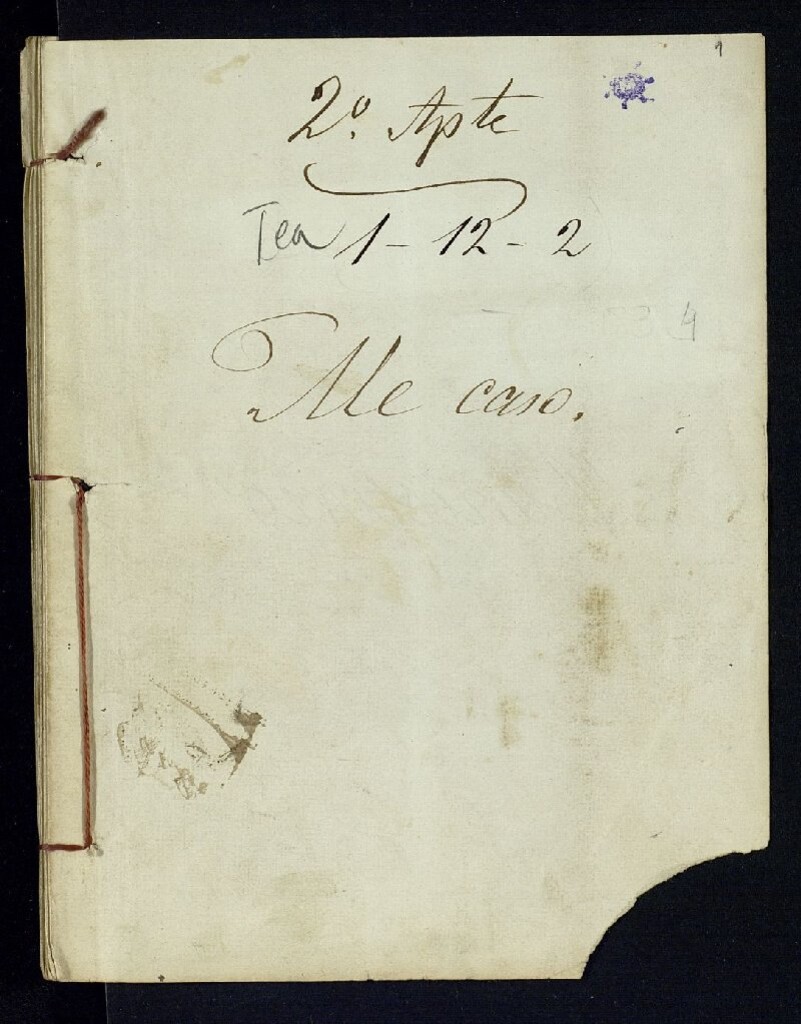 1
2º. Apte
Tea 1-12-2
4
Me caso.